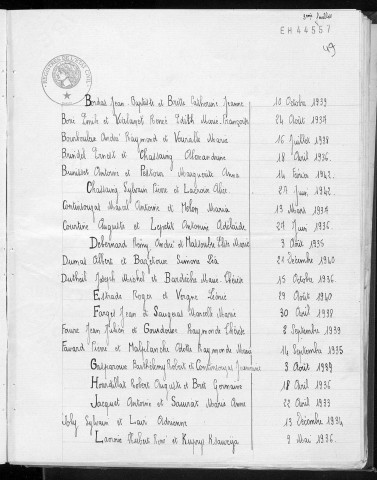 1er feuillet
EH44557
49
Bordas Jean Baptiste et Brette Catherine Jeanne 10 Octobre 1939
Borie Louis et Valanet Renée Edith Marie Françoise 24 Août 1937
Bourboulou André Raymond et Vouzelle Marie 16 Juillet 1938
Brindel Ernest et Chassaing Alexandrine 18 Avril 1936
Brunisset Antoine et Marguerite Anna 14 Février 1942
Chassaing Sylvain Pierre et Lacroix Alice 27 Juin 1942
Continsouzas Marcel Antoine et Melon Maria 13 Mars 1937
Courtine Auguste et Lepetit Antonine Adelaïde 27 Juin 1936
Debernard Rémy André et Elise Marie 3 Avril 1935
Dumas Albert et Simone Léa 21 Décembre 1940
Dutheil Joseph Michel et Bardèche Marie Thérèse 15 Octobre 1936
Estrade Roger et Vergne Léonie 29 Août 1940
Farges Jean et Saugnal Marcelle Marie 30 Avril 1938
Faure Jean Julien et Gourdoux Raymonde Thérèse 2 Septembre 1939
Favard Pierre et Odette Raymonde Marie 14 Septembre 1935
Gasparoux Barthélémy Robert et Continsouzas 3 Août 1939
Hourtillat Robert Auguste et Bret Germaine 18 Avril 1936
Jacquet Antoine et Saurat Marie Anne 22 Avril 1933
Joly Sylvain et Lair Adrienne 13 Décembre 1934
Lavoix Hubert René et 9 Mai 1936